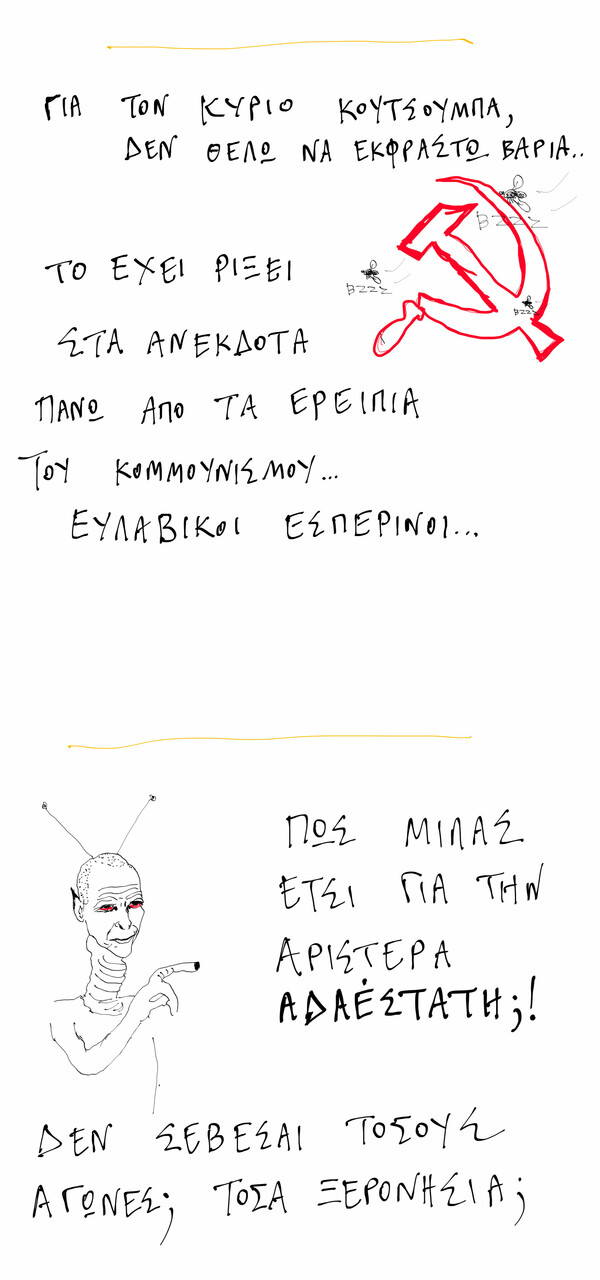 ΓΙΑ ΤΟΝ ΚΥΡΙΟ ΚΟΥΤΣΟΥΜΠΑ,
ΔΕΝ ΘΕΛΩ ΝΑ ΕΚΦΡΑΣΤΩ ΒΑΡΙΑ..
ΒΖΖΖ
ΤΟ ΕΧΕΙ ΡΙΞΕΙ
ΒΖΖΣ
ΒΖΖΣ
ΣΤΑ ΑΝΕΚΔΟΤΑ
ΠΑΝΩ ΑΠΟ ΤΑ ΕΡΕΙΠΙΑ
ΤΟΥ ΚΟΜΜΟΥΝΙΣΜΟΥ...
ΕΥΛΑΒΙΚΟΙ ΕΣΠΕΡΙΝΟΙ...
ΠΩΣ ΜΙΛΑΣ
ΕΤΣΙ ΓΙΑ ΤΗΝ
ΑΡΙΣΤΕΡΑ
ΑΔΑΈΣΤΑΤΗ;!
ΔΕΝ ΣΕΒΕΣΑΙ ΤΟΣΟΥΣ
ΑΓΩΝΕΣ; ΤΟΣΑ ΞΕΡΟΝΗΣΙΑ;